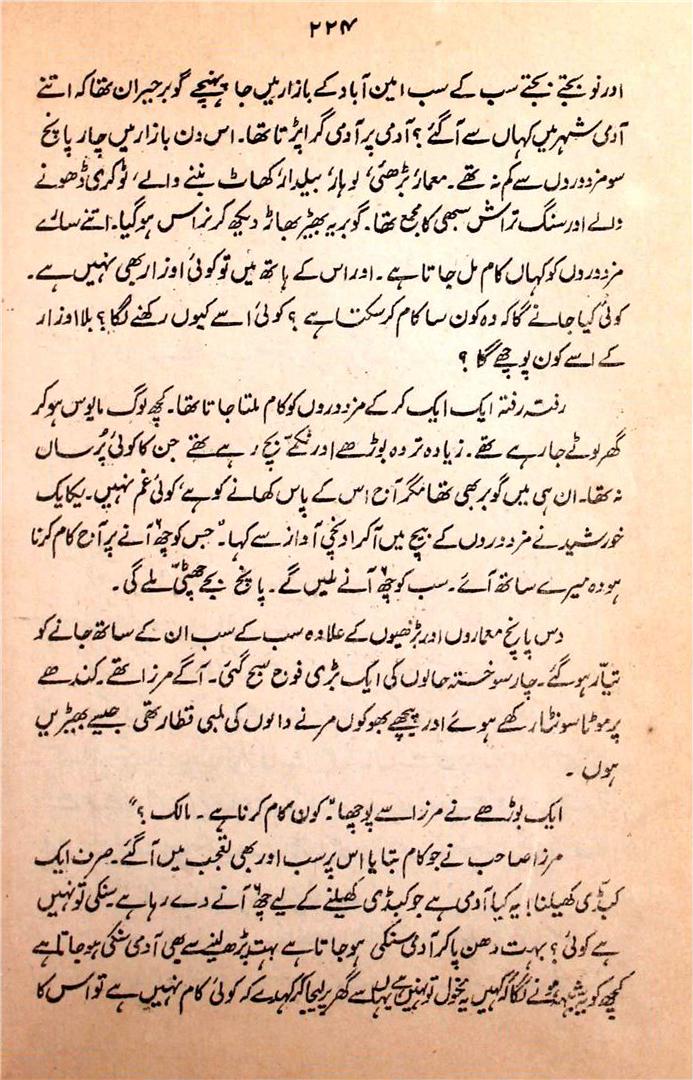 ۲۲۴
اور نو بجتے بجتے سب کے سب امین آباد کے بازار میں جا پہنچے گوبر حیران تھا کہ اتنے
آدمی شہر میں کہاں سے آ گئے ؟ آدمی پر آدمی گرا پڑتا تھا۔ اس دن بازار میں چار پانچ
سو مزدوروں سے کم نہ تھے۔ معمار، بڑھئی، لوہار، بیلدار، کھاٹ بننے والے، ٹوکری ڈھونے
والے اور سنگ تراش سبھی کا مجمع تھا۔ گوبر یہ بھیڑ بھاڑ دیکھ کر نراس ہو گیا۔ اتنے سارے
مزدوروں کو کہاں کام مل جاتا ہے ۔ اور اس کے ہاتھ میں تو کوئی اوزار بھی نہیں ہے۔
کوئی کیا جانے گا کہ وہ کون سا کام کر سکتا ہے ؟ کوئی اسے کیوں رکھنے لگا ؟ بلا اوزار
کے اسے کون پوچھے گا ؟
رفتہ رفتہ ایک ایک کر کے مزدوروں کو کام ملتا جاتا تھا۔ کچھ لوگ مایوس ہو کر
گھر لوٹے جا رہے تھے۔ زیادہ تر وہ بوڑھے اور نکمّے بچ رہے تھے جن کا کوئی پُرساں
نہ تھا۔ ان ہی میں گوبر بھی تھا مگر آج اس کے پاس کھانے کو ہے، کوئی غم نہیں۔ یکایک
خورشید نے مزدوروں کے بیچ میں آ کر اونچی آواز سے کہا۔" جس کو چھ آنے پر آج کام کرنا
ہو وہ میرے ساتھ آئے۔ سب کو چھ آنے ملیں گے۔ پانچ بجے چھٹی ملے گی۔
دس پانچ معماروں اور بڑھیوں کے علاوہ سب کے سب ان کے ساتھ جانے کو
تیّار ہو گئے۔ چار سو خستہ حالوں کی ایک بڑی فوج سج گئی۔ آگے مرزا تھے۔ کندھے
پر موٹا سونٹا رکھے ہوئے اور پیچھے بھوکوں مرنے والوں کی لمبی قطار تھی جیسے بھیڑیں
ہوں ۔
ایک بوڑھے نے مرزا سے پوچھا۔" کون کام کرنا ہے ۔ مالک ؟"
مرزا صاحب نے جو کام بتایا اس پر سب اور بھی تعجب میں آ گئے۔ صرف ایک
کبڈّی کھیلنا ! یہ کیا آدمی ہے جو کبڈی کھیلنے کے لیے چھ آنے دے رہا ہے۔ سنکی تو نہیں
ہے کوئی ؟ بہت دھن پا کر آدمی سنکی ہو جاتا ہے بہت پڑھ لینے سے بھی آدمی سنکی ہو جاتا ہے
کچھ کو یہ شبہہ ہونے لگا کہ کہیں یہ مخول تو نہیں ہے یہاں سے گھر پر لیجا کر کہدے کہ کوئی کام نہیں ہے تو اس کا